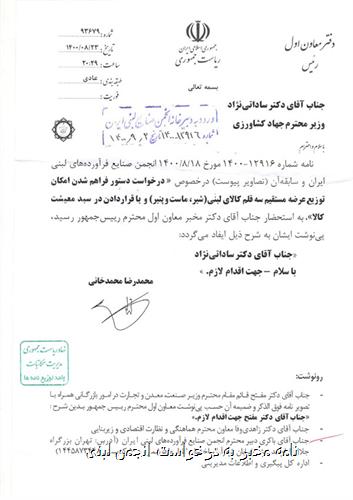 دفتر معاون اول
رئیس
جمهوری اسلامی ایران
ریاست جمهوری
شماره: ۹۳۶۷۹
تاریخ: ۱۴۰۰/۰۸/۲۳
ساعت: ۲۰:۲۹
طبقه‌بندی: عادی
فوریت:
بسمه تعالی
جناب آقای دکتر ساداتی‌نژاد
وزیر محترم جهاد کشاورزی
با سلام و احترام
نامه شماره ۱۲۹۱۶-۱۴۰۰ مورخ ۱۴۰۰/۸/۱۸ انجمن صنایع فرآورده‌های لبنی
ایران و سابقه‌آن (تصاویر پیوست) درخصوص «درخواست دستور فراهم شدن امکان
توزیع عرضه مستقیم سه قلم کالای لبنی (شیر، ماست و پنیر) و یا قراردادن در سبد معیشت
کالا»، به استحضار جناب آقای دکتر مخبر معاون اول محترم رییس‌جمهور رسید،
پی‌نوشت ایشان به شرح ذیل ایفاد می‌گردد:
«جناب آقای دکتر ساداتی‌نژاد
با سلام – جهت اقدام لازم.»
محمدرضا محمدخانی
نهاد ریاست جمهوری
مدیریت مکاتبات
واحد توزیع نامه ها
رونوشت:
- جناب آقای دکتر مفتح قائم مقام محترم وزیر صنعت، معدن و تجارت در امور بازرگانی همراه با
تصویر نامه فوق الذکر و ضمیمه آن حسب پی‌نوشت معاون اول محترم رییس جمهور بدین شرح:
«جناب آقای دکتر مفتح جهت اقدام لازم.»
- جناب آقای دکتر زاهدی‌وفا معاون محترم هماهنگی و نظارت اقتصادی و زیربنایی
- جناب آقای باکری دبیر محترم انجمن صنایع فرآورده‌های لبنی ایران (آدرس: تهران بزرگراه
نامه مخبر به درخواست انجمن لبنی
- اداره کل پیگیری و اطلاعات مدیریتی